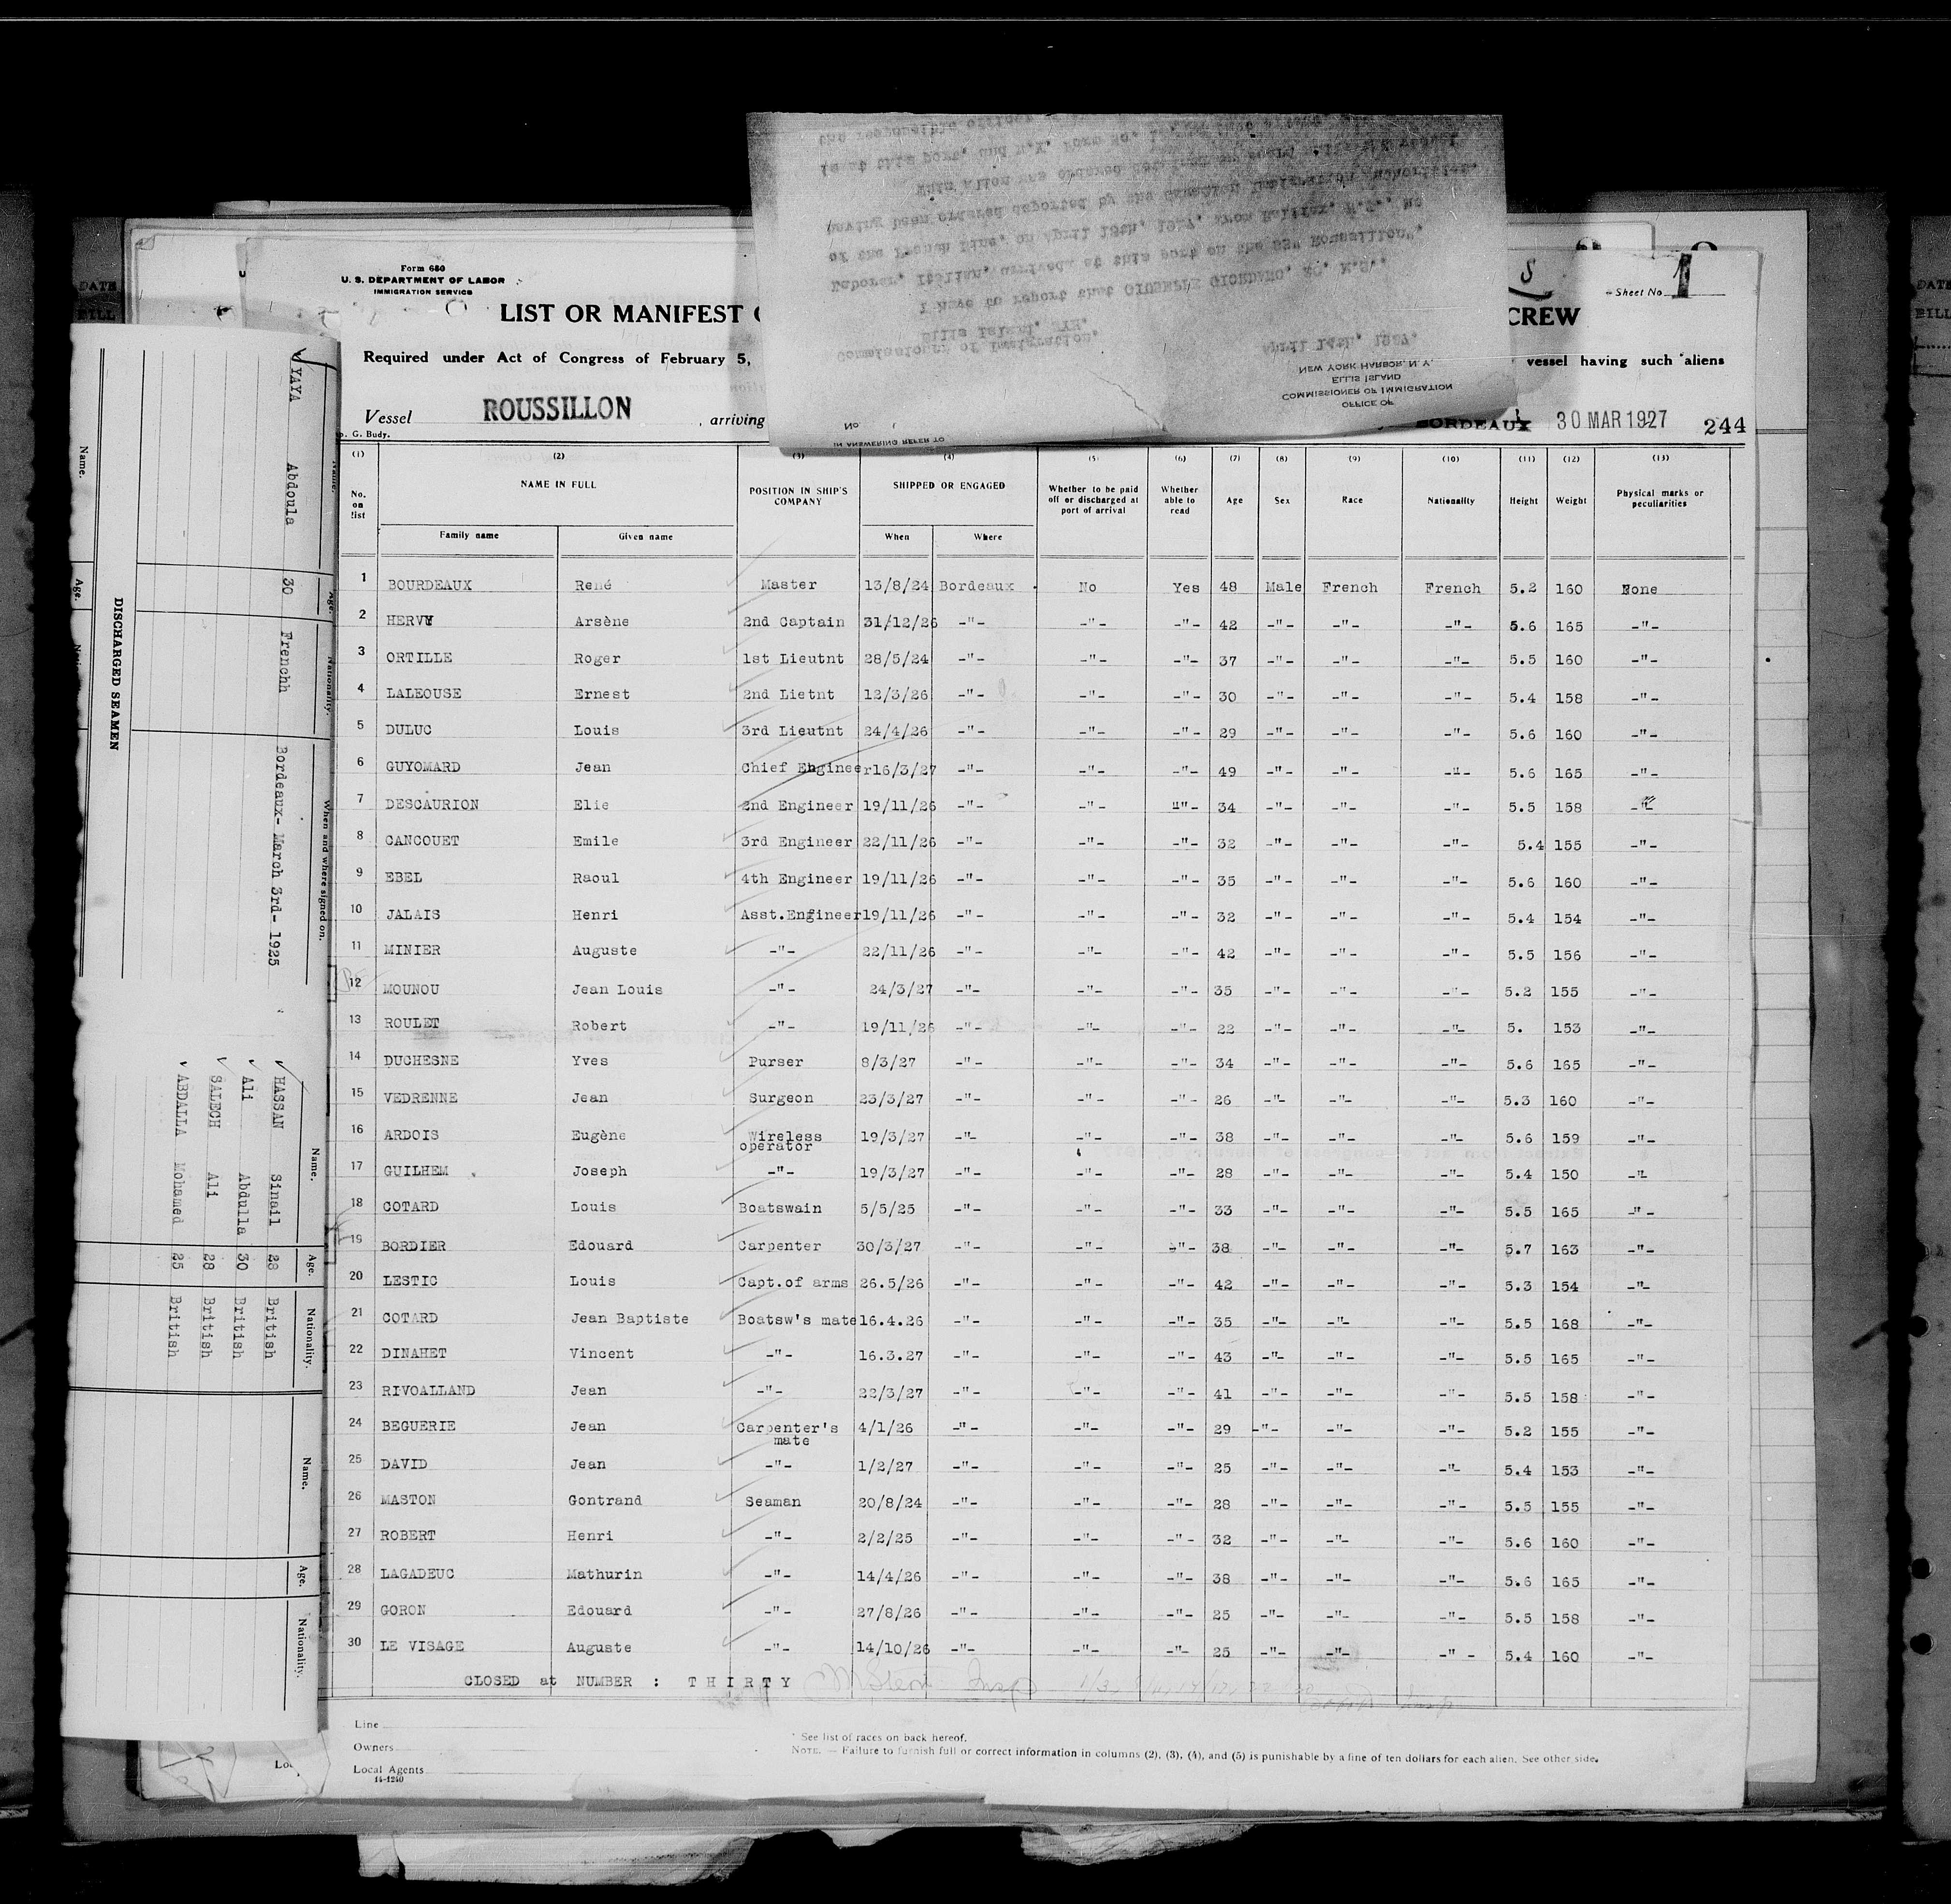 Form 680
U. S. DEPARTMENT OF LABOR
IMMIGRATION SERVICE
LIST OR MANIFEST
CREW
Sheet No. 1
Required under Act of Congress of February 5,
vessel having such aliens
Vessel ROUSSILLON , arriving
BORDEAUX 30 MAR 1927 244
G. Budy.
(1) (2) (3) (4) (5) (6) (7) (8) (9) (10) (11) (12) (13)
No. on list NAME IN FULL POSITION IN SHIP'S COMPANY SHIPPED OR ENGAGED Whether to be paid off or discharged at port of arrival Whether able to read Age Sex Race Nationality Height Weight Physical marks or peculiarities
Family name Given name When Where
1 BOURDEAUX René Master 13/8/24 Bordeaux No Yes 48 Male French French 5.2 160 None
2 HERVY Arsène 2nd Captain 31/12/26 -"- -"- -"- 42 -"- -"- -"- 5.6 165 -"-
3 ORTILLE Roger 1st Lieutnt 28/5/24 -"- -"- -"- 37 -"- -"- -"- 5.5 160 -"-
4 LALEOUSE Ernest 2nd Lietnt 12/3/26 -"- -"- -"- 30 -"- -"- -"- 5.4 158 -"-
5 DULUC Louis 3rd Lieutnt 24/4/26 -"- -"- -"- 29 -"- -"- -"- 5.6 160 -"-
6 GUYOMARD Jean Chief Engineer 16/3/27 -"- -"- -"- 49 -"- -"- -"- 5.6 165 -"-
7 DESCAURION Elie 2nd Engineer 19/11/26 -"- -"- -"- 34 -"- -"- -"- 5.5 158 -"-
8 CANCOUET Emile 3rd Engineer 22/11/26 -"- -"- -"- 32 -"- -"- -"- 5.4 155 -"-
9 EBEL Raoul 4th Engineer 19/11/26 -"- -"- -"- 35 -"- -"- -"- 5.6 160 -"-
10 JALAIS Henri Asst.Engineer 19/11/26 -"- -"- -"- 32 -"- -"- -"- 5.4 154 -"-
11 MINIER Auguste -"- 22/11/26 -"- -"- -"- 42 -"- -"- -"- 5.5 156 -"-
12 MOUNOU Jean Louis -"- 24/3/27 -"- -"- -"- 35 -"- -"- -"- 5.2 155 -"-
13 ROULET Robert -"- 19/11/26 -"- -"- -"- 22 -"- -"- -"- 5. 153 -"-
14 DUCHESNE Yves Purser 8/3/27 -"- -"- -"- 34 -"- -"- -"- 5.6 165 -"-
15 VEDRENNE Jean Surgeon 23/3/27 -"- -"- -"- 26 -"- -"- -"- 5.3 160 -"-
16 ARDOIS Eugène Wireless operator 19/3/27 -"- -"- -"- 38 -"- -"- -"- 5.6 159 -"-
17 GUILHEM Joseph -"- 19/3/27 -"- -"- -"- 28 -"- -"- -"- 5.4 150 -"-
18 COTARD Louis Boatswain 5/5/25 -"- -"- -"- 33 -"- -"- -"- 5.5 165 -"-
19 BORDIER Edouard Carpenter 30/3/27 -"- -"- -"- 38 -"- -"- -"- 5.7 163 -"-
20 LESTIC Louis Capt.of arms 26.5/26 -"- -"- -"- 42 -"- -"- -"- 5.3 154 -"-
21 COTARD Jean Baptiste Boatsw's mate 16.4.26 -"- -"- -"- 35 -"- -"- -"- 5.5 168 -"-
22 DINAHET Vincent -"- 16.3.27 -"- -"- -"- 43 -"- -"- -"- 5.5 165 -"-
23 RIVOALLAND Jean -"- 22/3/27 -"- -"- -"- 41 -"- -"- -"- 5.5 158 -"-
24 BEGUERIE Jean Carpenter's mate 4/1/26 -"- -"- -"- 29 -"- -"- -"- 5.2 155 -"-
25 DAVID Jean -"- 1/2/27 -"- -"- -"- 25 -"- -"- -"- 5.4 153 -"-
26 MASTON Gontrand Seaman 20/8/24 -"- -"- -"- 28 -"- -"- -"- 5.5 155 -"-
27 ROBERT Henri -"- 2/2/25 -"- -"- -"- 32 -"- -"- -"- 5.6 160 -"-
28 LAGADEUC Mathurin -"- 14/4/26 -"- -"- -"- 38 -"- -"- -"- 5.6 165 -"-
29 GORON Edouard -"- 27/8/26 -"- -"- -"- 25 -"- -"- -"- 5.5 158 -"-
30 LE VISAGE Auguste -"- 14/10/26 -"- -"- -"- 25 -"- -"- -"- 5.4 160 -"-
CLOSED at NUMBER : THIRTY
Line
Owners
Local Agents
14-1240
* See list of races on back hereof.
NOTE. — Failure to furnish full or correct information in columns (2), (3), (4), and (5) is punishable by a fine of ten dollars for each alien. See other side.
IN ANSWERING REFER TO
No
OFFICE OF
COMMISSIONER OF IMMIGRATION
ELLIS ISLAND
NEW YORK HARBOR, N. Y.
April 14th, 1927.
Commissioner of Immigration,
Ellis Island, NYH.
I have to report that GIUSEPPE GIORDANO,
Laborer, Italian, arrived at this port on the SS" Roussillon",
of the French Line, on April 13th, 1927, from Halifax, N.S., he
having been ordered deported by the Canadian Immigration Authorities.
DISCHARGED SEAMEN
Name. Age. Nationality. When and where signed on.
YAYA Abdoula 30 Frenchh Bordeaux- March 3rd- 1925
Name. Age. Nationality.
HASSAN Sinail 28 British
Ali Abdulla 30 British
SALECH Ali 28 British
ABDALLA Mohamed 25 British
Name. Age. Nationality.